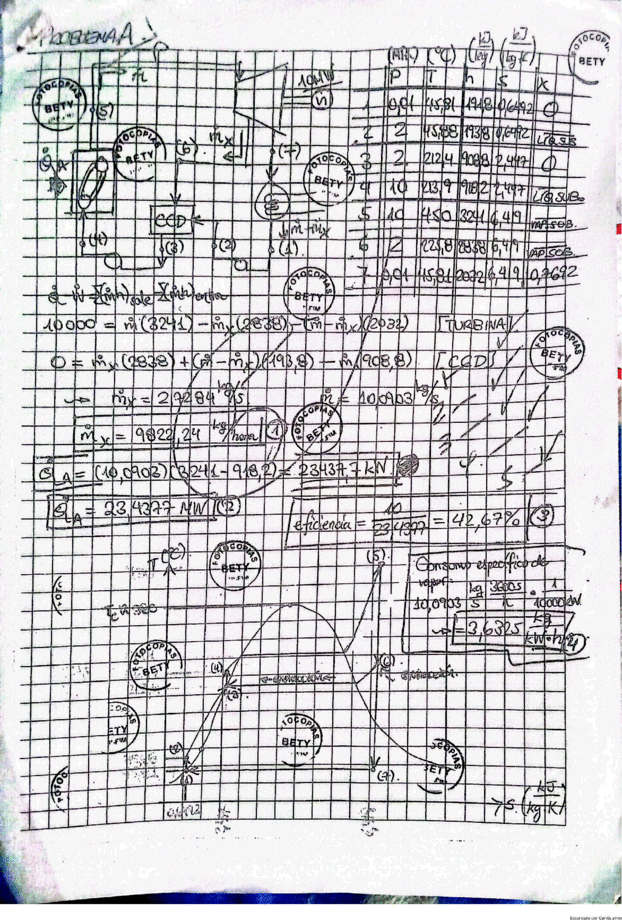 PROBLEMA A
(MPa) (°C) (kJ/kg) (kJ/kg·K)
P T h s x
1 0,01 45,81 191,8 0,6492 0
2 2 45,88 193,8 0,6492 LIQ. SUB.
3 2 212,4 908,8 2,447 0
4 10 213,9 918,2 2,447 LIQ. SUB.
5 10 450 3241 6,419 VAP. SOB.
6 2 225,8 2838 6,419 VAP. SOB.
7 0,01 45,81 2032 6,419 0,7692
ṁ
10MW
n
(5)
Q̇A
(6)
ṁx
(7)
CCD
ṁ-ṁx
(4) (3) (2) (1)
Q̇ - Ẇ = Σ(ṁh)sale - Σ(ṁh)entra
10000 = ṁ(3241) - ṁx(2838) - (ṁ-ṁx)(2032) [TURBINA]
0 = ṁx(2838) + (ṁ-ṁx)(193,8) - ṁ(908,8) [CCD]
→ ṁx = 2,7284 kg/s ṁ = 10,0903 kg/s
ṁx = 9822,24 kg/hora (1)
Q̇A = (10,0903)(3241-918,2) = 23437,7 kW
Q̇A = 23,4377 MW (2)
eficiencia = 10/23,4377 = 42,67% (3)
Consumo específico de
vapor:
10,0903 kg/s · 3600s/h · 1/10000kW
→ = 3,6325 kg/kW·h (4)
T(°C)
(5)
(4)
(3)
(6)
(2)
(1)
(7)
0,6492
s (kJ/kg·K)
FOTOCOPIAS
BETY
Escaneado con CamScanner